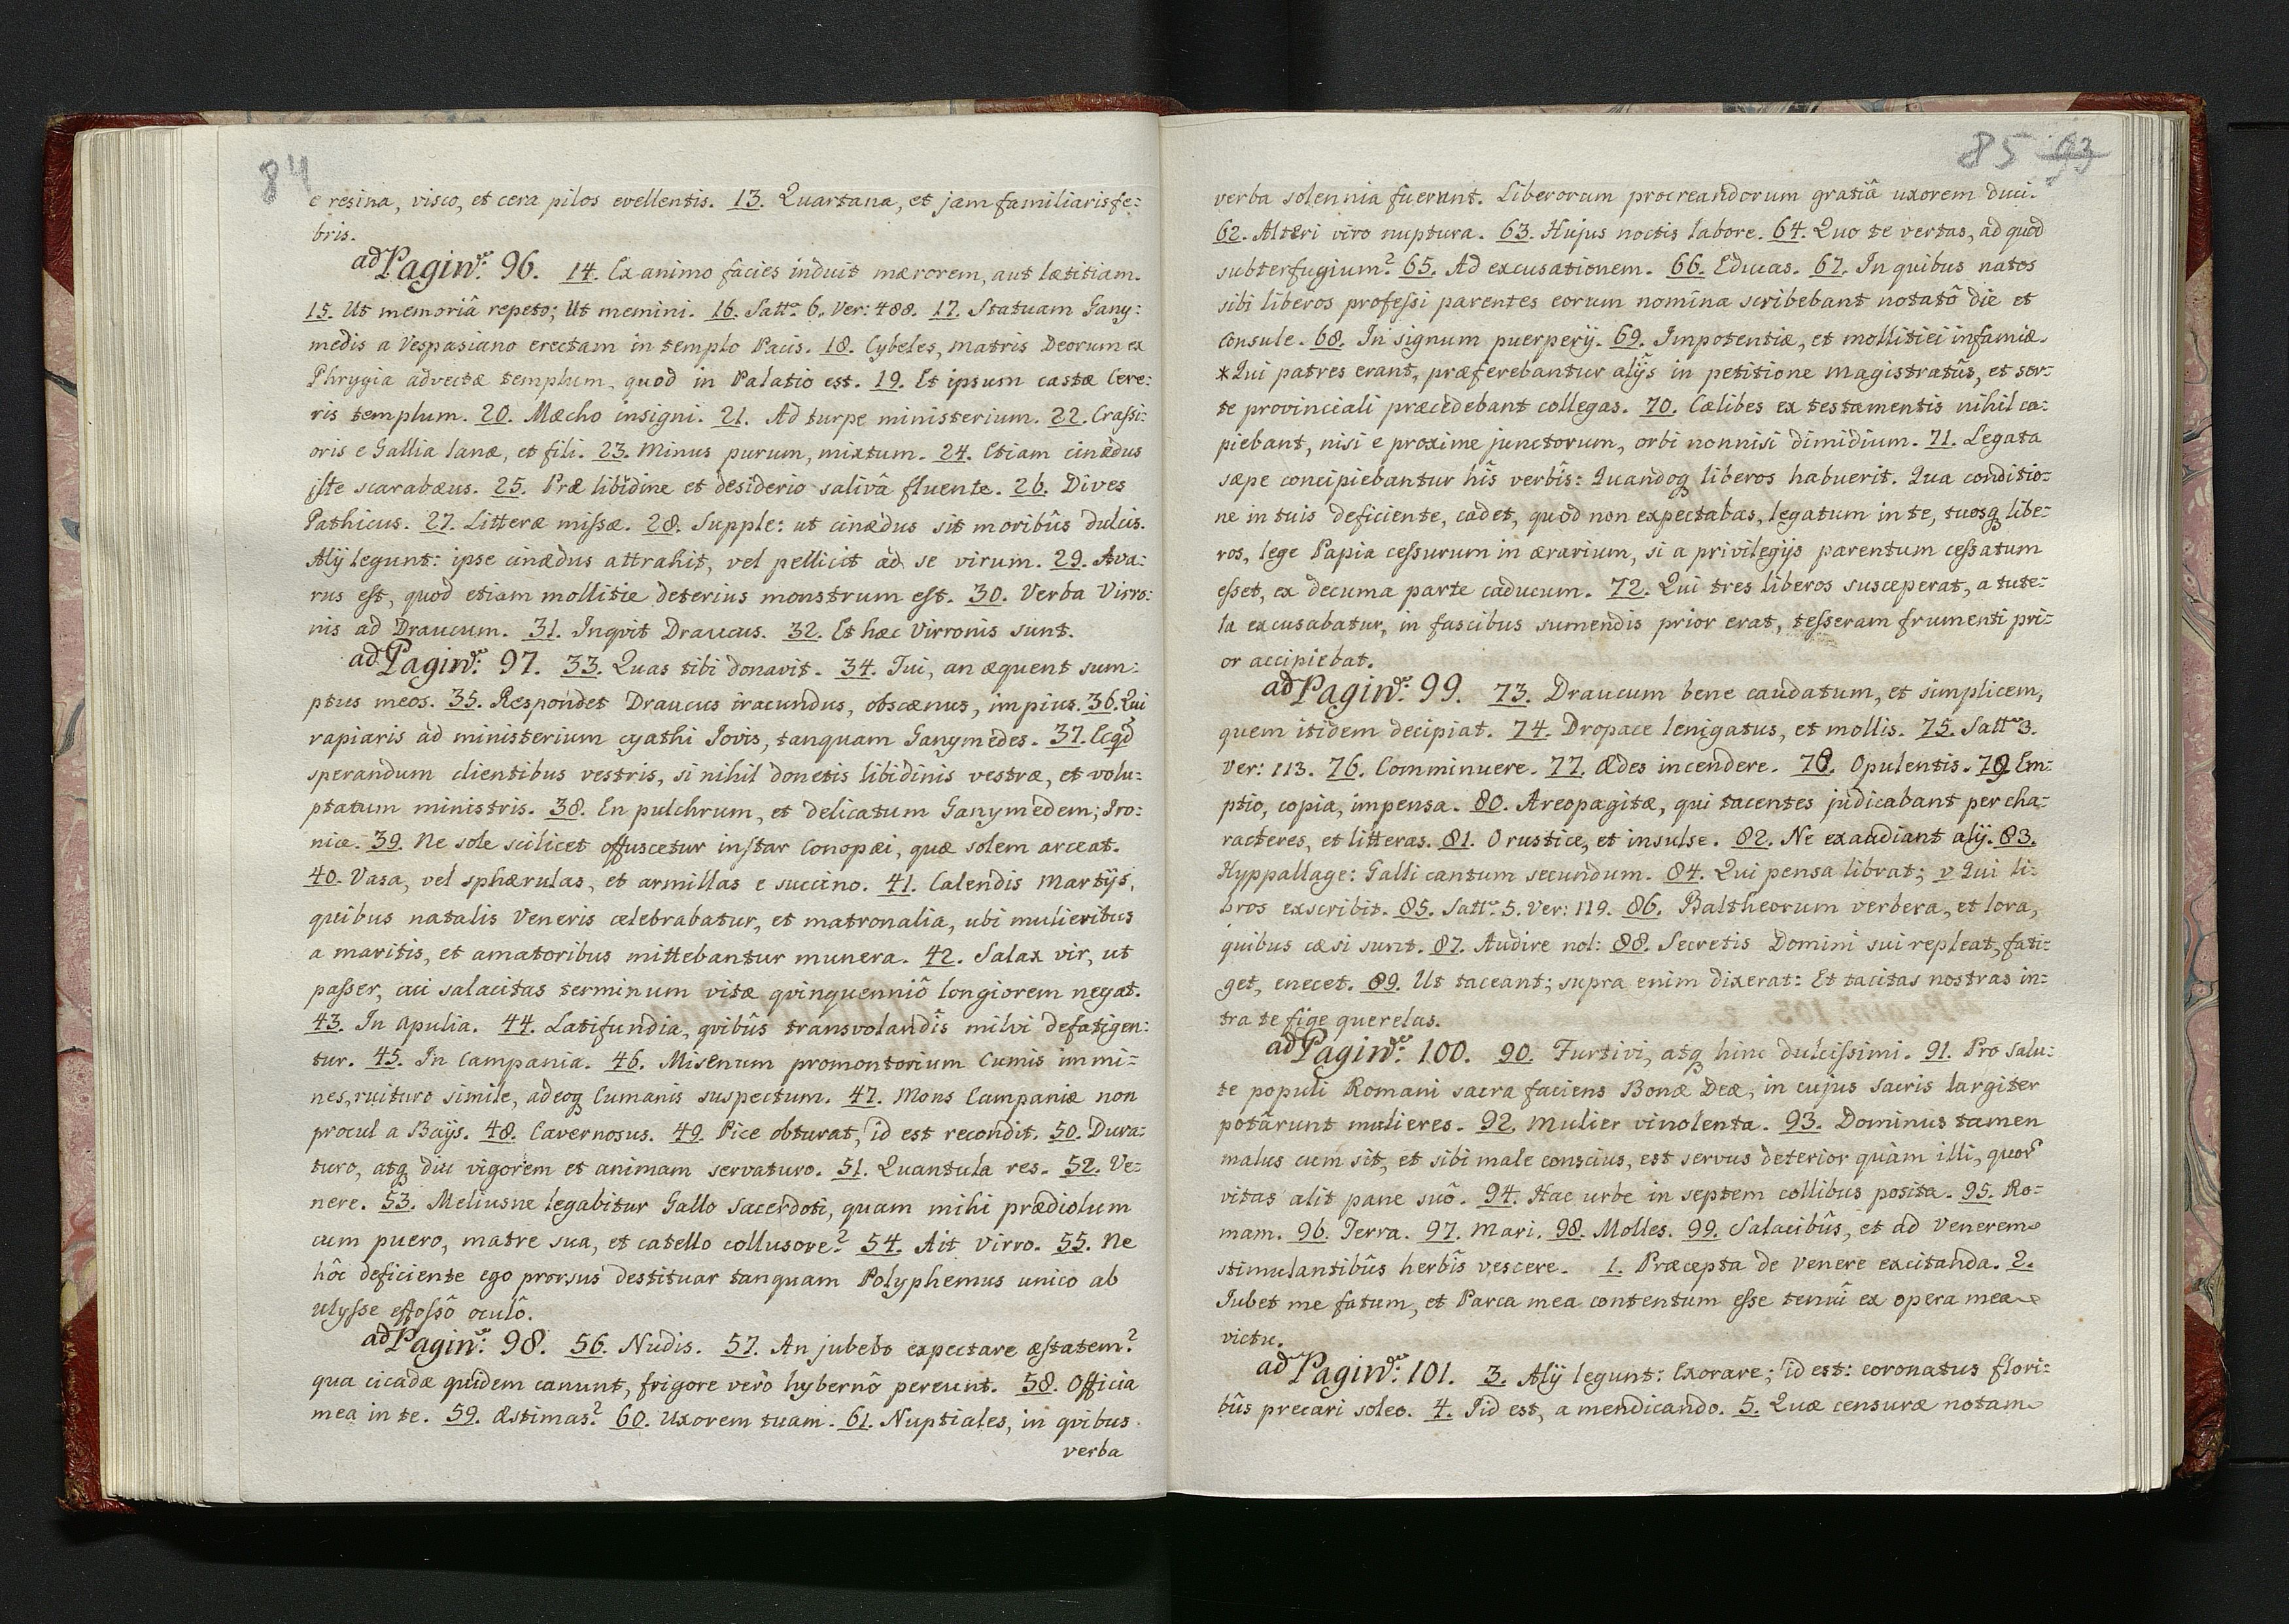 84
e resina, visco, et cera pilos evellentis. 13. Quartana, et jam familiaris fe:
bris.
ad Pagin: 96. 14. Ex animo facies induit mærorem, aut lætitiam.
15. Ut memoriâ repeto; Ut memini. 16. Satt. 6. Ver: 488. 17. Statuam Gany:
medis a Vespasiano erectam in templo Pacis. 18. Cybeles, matris Deorum ex
Phrygia advectæ templum, quod in Palatio est. 19. Et ipsum castæ Cere:
ris templum. 20. Mæcho insigni. 21. Ad turpe ministerium. 22. Crassi:
oris e Gallia lanæ, et fili. 23. Minus purum, mixtum. 24. Etiam cinædus
iste scarabæus. 25. Præ libidine et desiderio salivâ fluente. 26. Dives
Pathicus. 27. Litteræ missæ. 28. Supple: ut cinædus sit moribûs dulcis.
Alij legunt: ipse cinædus attrahit, vel pellicit ad se virum. 29. Ava:
rus est, quod etiam mollitie deterius monstrum est. 30. Verba Virro:
nis ad Draucum. 31. Inqvit Draucus. 32. Et hæc Virronis sunt.
ad Pagin: 97. 33. Quas tibi donavit. 34. Tui, an æquent sum:
ptus meos. 35. Respondet Draucus iracundus, obscænus, impius. 36. Qui
rapiaris ad ministerium cyathi Jovis, tanquam Ganymedes. 37. Ecqd
sperandum clientibus vestris, si nihil donetis libidinis vestræ, et volu:
ptatum ministris. 38. En pulchrum, et delicatum Ganymedem; Iro:
nice. 39. Ne sole scilicet offuscetur instar Conopæi, quæ solem arceat.
40. Vasa, vel sphærulas, et armillas e succino. 41. Calendis Martijs,
quibus natalis Veneris celebrabatur, et matronalia, ubi mulieribus
a maritis, et amatoribus mittebantur munera. 42. Salax vir, ut
passer, cui salacitas terminum vitæ qvinquenniô longiorem negat.
43. In Apulia. 44. Latifundia, qvibûs transvolandîs milvi defatigen:
tur. 45. In Campania. 46. Misenum promontorium Cumis immi:
nes, ruituro simile, adeoq Cumanis suspectum. 47. Mons Campaniæ non
procul a Baijs. 48. Cavernosus. 49. Pice obturat, id est recondit. 50. Dura:
turo, atq diu vigorem et animam servaturo. 51. Quantula res. 52. Ve:
nere. 53. Meliusne legabitur Gallo Sacerdoti, quam mihi prædiolum
cum puero, matre sua, et catello collusore? 54. Ait Virro. 55. Ne
hôc deficiente ego prorsus destituar tanquam Polyphemus unico ab
Ulysse effossô oculô.
ad Pagin: 98. 56. Nudis. 57. An jubebo expectare æstatem?
qua cicadæ quidem canunt, frigore verò hybernô pereunt. 58. Officia
mea in te. 59. Æstimas? 60. Uxorem tuam. 61. Nuptiales, in qvibus
verba
85 93
verba solennia fuerunt. Liberorum procreandorum gratiâ uxorem duci.
62. Alteri viro nuptura. 63. Hujus noctis labore. 64. Quo te vertas, ad quod
subterfugium? 65. Ad excusationem. 66. Educas. 67. In quibus natos
sibi liberos professi parentes eorum nomina scribebant notatô die et
Consule. 68. In signum puerperij. 69. Impotentiæ, et mollitiei infamiæ.
*Qui patres erant, præferebantur alijs in petitione magistratûs, et sor:
te provinciali præcedebant collegas. 70. Cælibes ex testamentis nihil ca:
piebant, nisi e proxime junctorum, orbi nonnisi dimidium. 71. Legata
sæpe concipiebantur hîs verbîs: Quandoq liberos habuerit. Qua conditio:
ne in tuis deficiente, cadet, quod non expectabas, legatum in te, tuosq libe:
ros, lege Papia cessurum in ærarium, si a privilegijs parentum cessatum
esset, ex decuma parte caducum. 72. Qui tres liberos susceperat, a tute:
la excusabatur, in fascibus sumendis prior erat, tesseram frumenti pri:
or accipiebat.
ad Pagin: 99. 73. Draucum bene caudatum, et simplicem,
quem itidem decipiat. 74. Dropace lenigatus, et mollis. 75. Satt. 3.
Ver: 113. 76. Comminuere. 77. Ædes incendere. 78. Opulentis. 79. Em:
ptio, copia, impensa. 80. Areopagitæ, qui tacentes judicabant per cha:
racteres, et litteras. 81. O rustice, et insulse. 82. Ne exaudiant alij. 83.
Hyppallage: Galli cantum secundum. 84. Qui pensa librat; v Qui li:
bros exscribit. 85. Satt. 5. Ver: 119. 86. Baltheorum verbera, et lora,
quibus cæsi sunt. 87. Audire nol: 88. Secretis Domini sui repleat, fati:
get, enecet. 89. Ut taceant; supra enim dixerat: Et tacitas nostras in:
tra te fige querelas.
ad Pagin: 100. 90. Furtivi, atq hinc dulcissimi. 91. Pro salu:
te populi Romani sacra faciens Bonæ Deæ, in cujus sacris largiter
potârunt mulieres. 92. Mulier vinolenta. 93. Dominus tamen
malus cum sit, et sibi male conscius, est servus deterior quàm illi, quor
vitas alit pane suô. 94. Hac urbe in septem collibus posita. 95. Ro:
mam. 96. Terra. 97. Mari. 98. Molles. 99. Salacibûs, et ad Venerem
stimulantibûs herbîs vescere. 1. Præcepta de Venere excitanda. 2.
Jubet me fatum, et Parca mea contentum esse tenui ex opera mea
victu.
ad Pagin: 101. 3. Alij legunt: Exorare; id est: coronatus flori:
bûs precari soleo. 4. Iid est, a mendicando. 5. Quæ censuræ notam